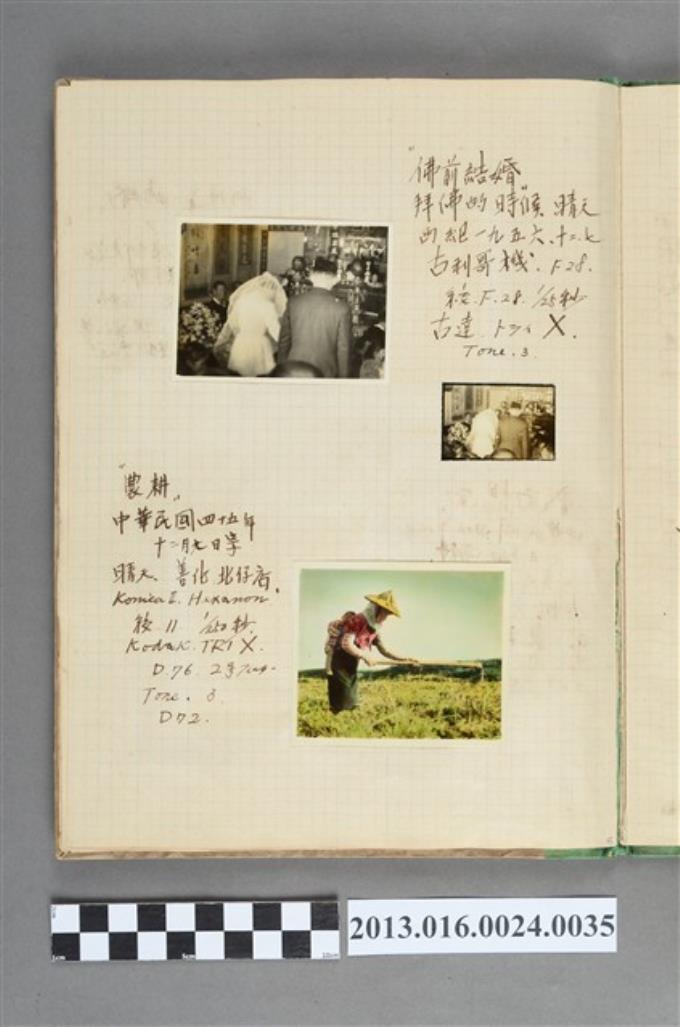 "佛前結婚"
拜佛的時候、晴天
西紀一九五六、十二.七
古利哥機. F.28.
絞.F.28. 1/25秒
古達 トライ X.
Tone. 3.
"農耕"
中華民國四十五年
十二月七日
晴天、善化 北仔店
Konica I. Hexanon
絞 11 1/250秒.
Kodak. TRI X.
D.76. 2号
Tone. 3.
D72.
2013.016.0024.0035
1cm 5cm 10cm